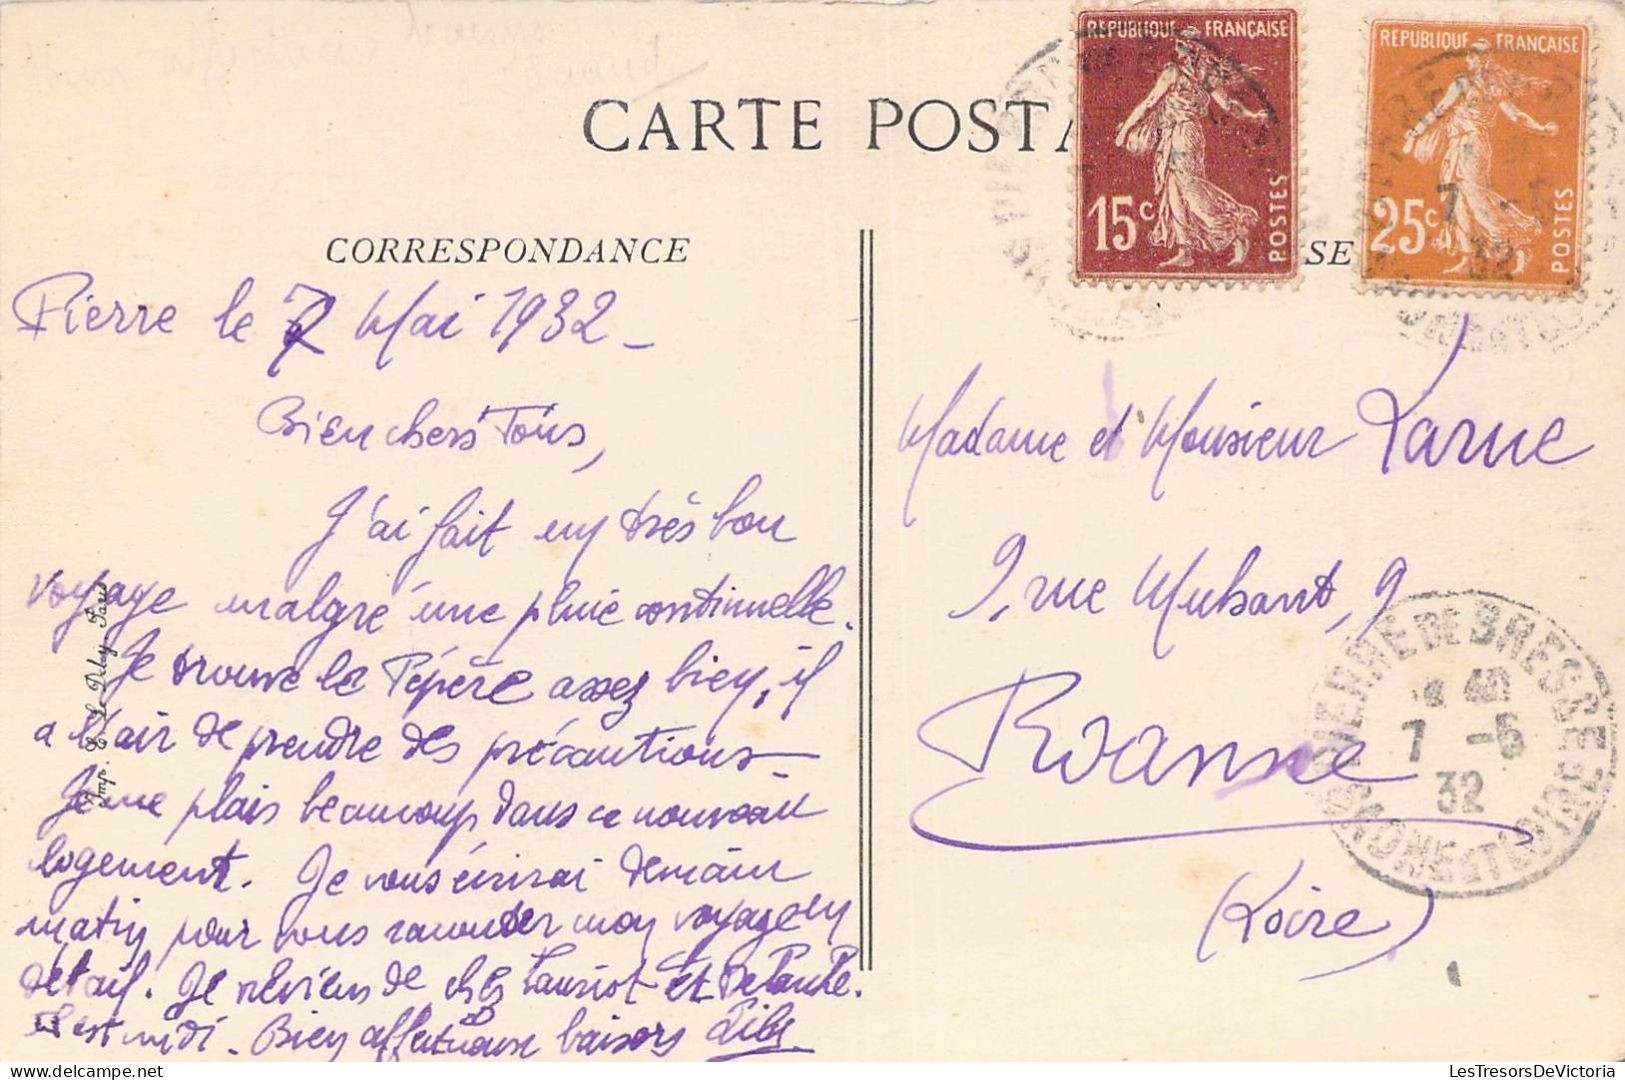 CARTE POSTA
RÉPUBLIQUE FRANÇAISE
15c
POSTES
RÉPUBLIQUE FRANÇAISE
25c
POSTES
7 -5
32
CORRESPONDANCE
SE
Pierre le 7 Mai 1932 -
Bien chers Tous,
J'ai fait un très bon
voyage malgré une pluie continuelle.
Je trouve le Pépère assez bien, il
a l'air de prendre des précautions -
Je me plais beaucoup dans ce nouveau
logement. Je vous écrirai demain
matin pour vous raconter mon voyage en
détail. Je reviens de chez Lauriot et
Il est midi. Bien affectueux baisers
Imp. E. Le Deley, Paris
Madame et Monsieur Larue
9, rue Mulsant, 9
Roanne
(Loire)
PIERRE DE BRESSE
7 -5
32
SAONE ET LOIRE
LesTresorsDeVictoria